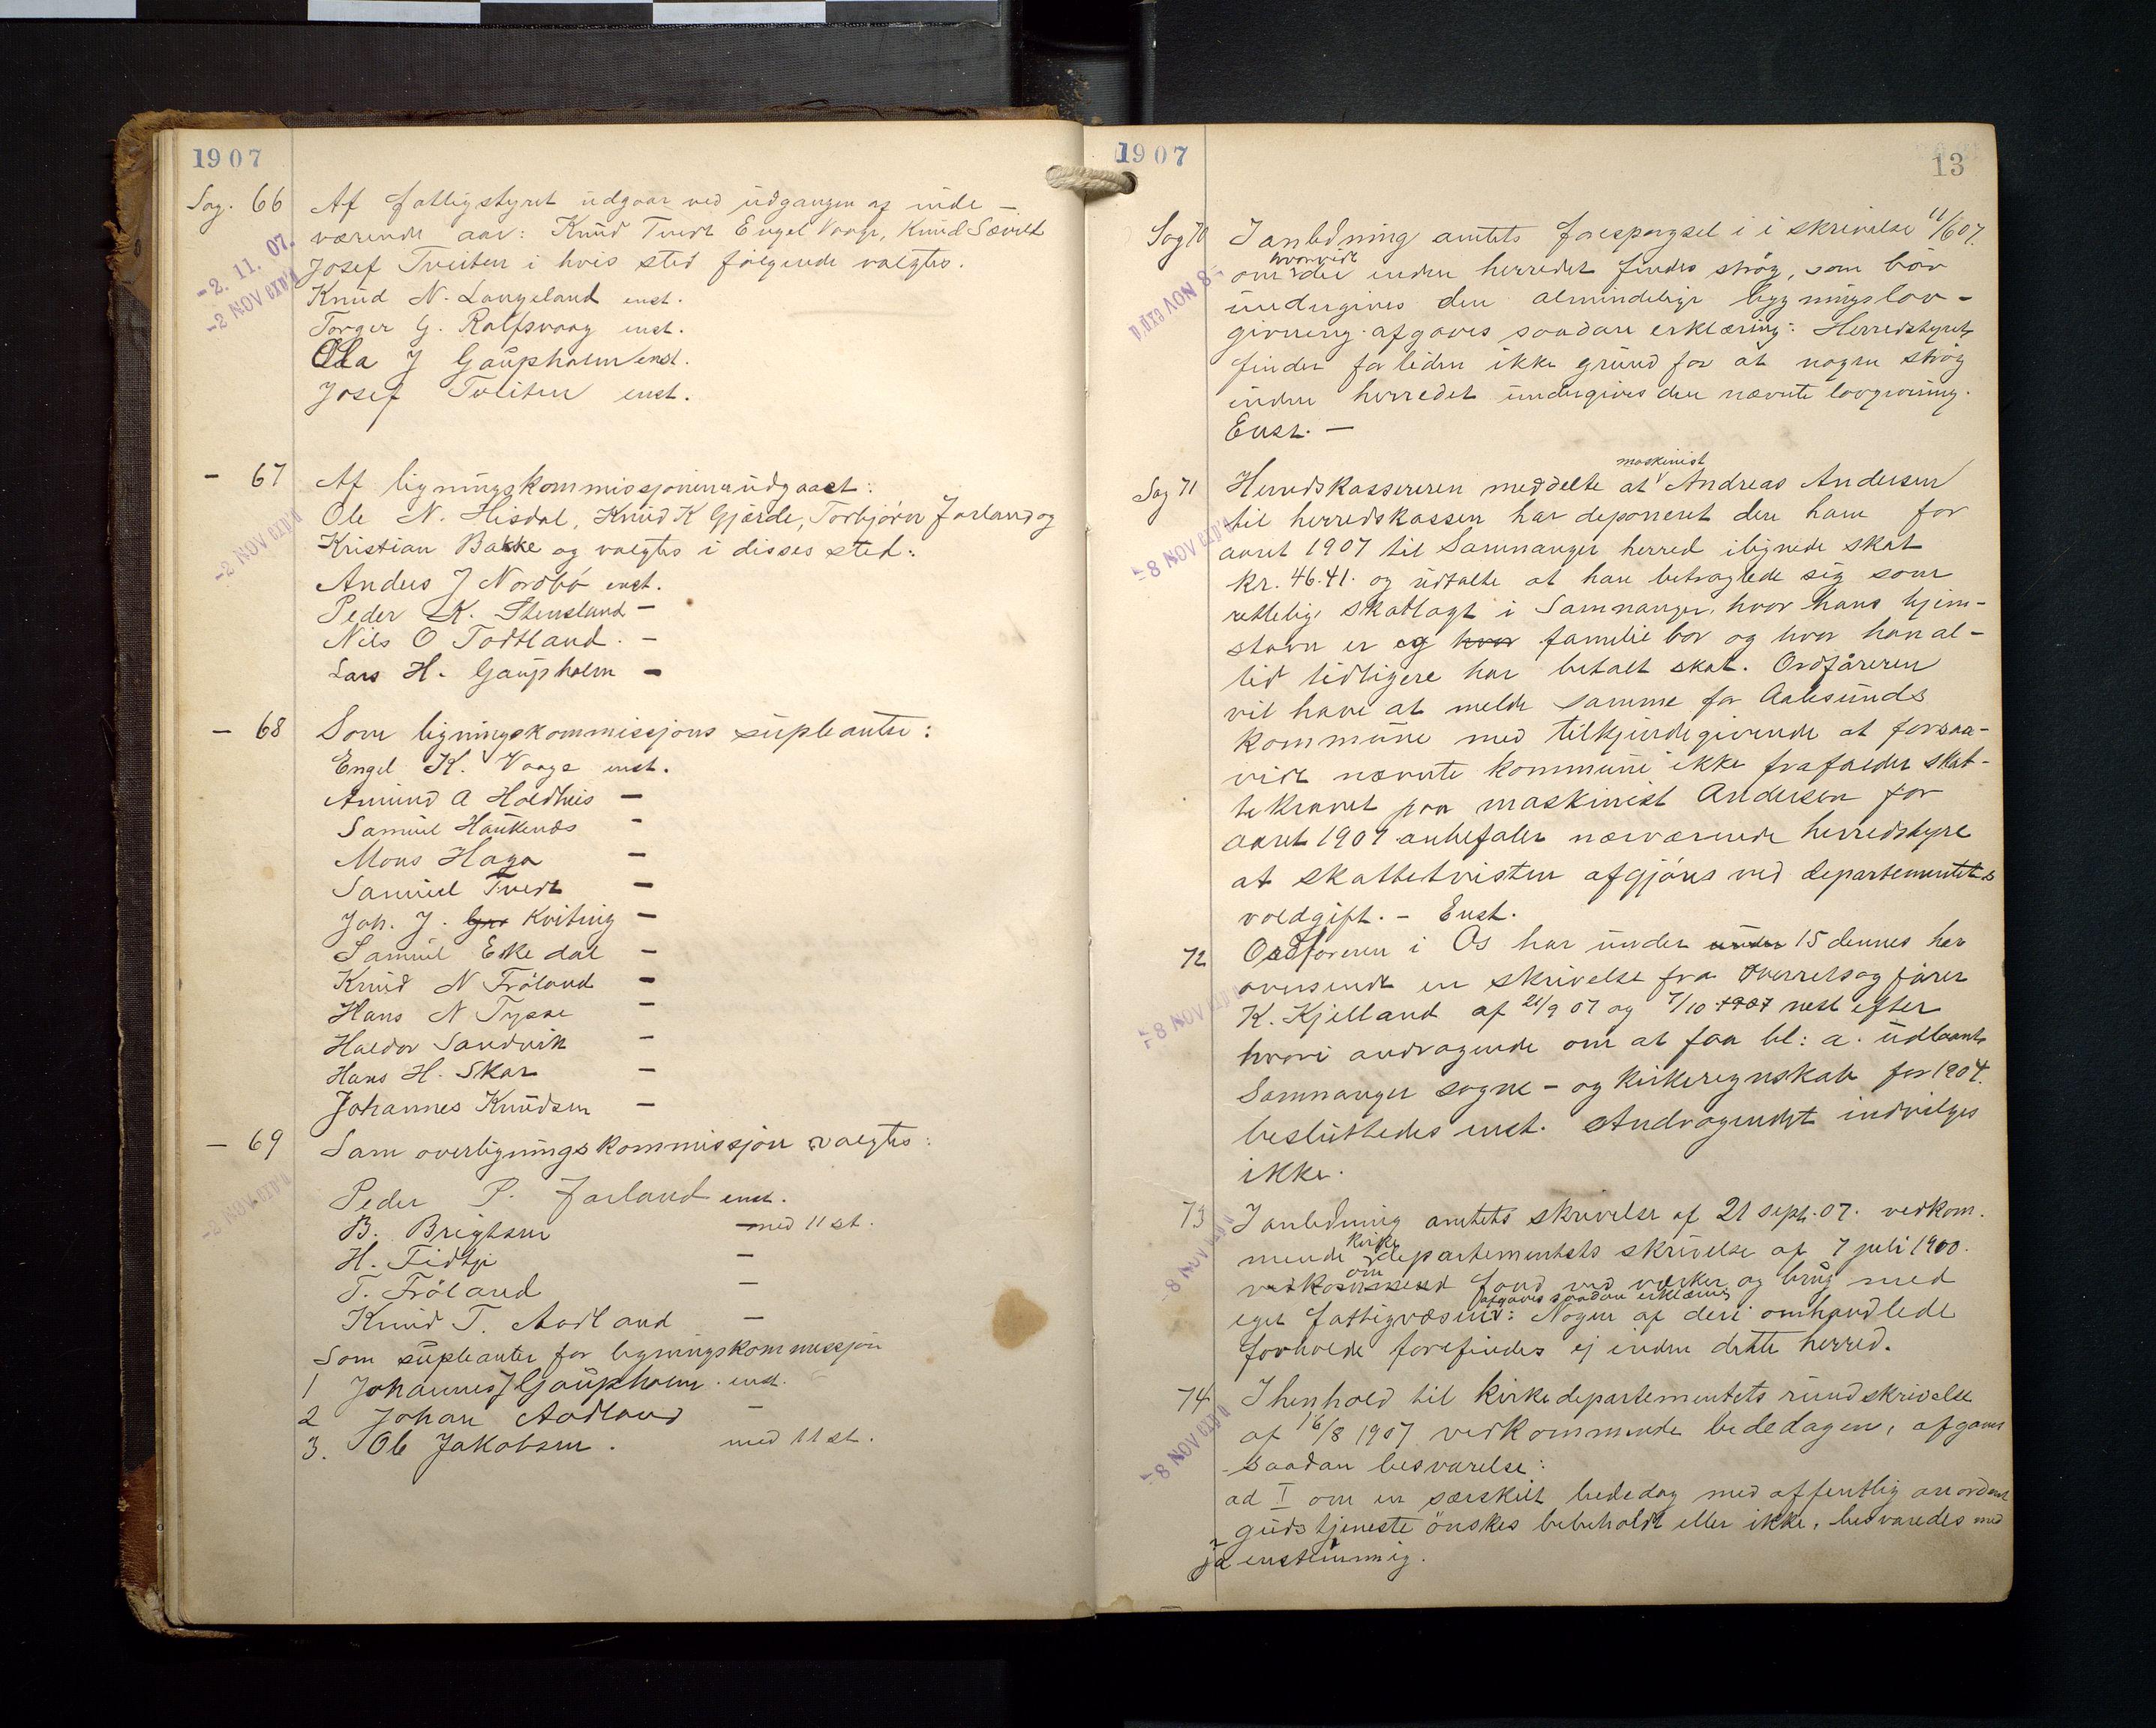 1907
Sag. 66 Af fattigstyret udgaar ved udgangen af inde-
værende aar: Knud Tvedt Engel Vaage, Knud Sævild
Josef Tveiten i hvis sted følgende valgtes.
-2. 11. 07.
-2 NOV EXP'D
Knud N. Langeland enst.
Torger G. Rolfsvaag enst.
Ola J Gaupholm enst.
Josef Tveiten enst.
- 67 Af ligningskommissjonen udgaaet:
Ole N. Hisdal, Knud K Gjærde, Torbjørn Jarland og
Kristian Bakke og valgtes i disses sted:
-2 NOV EXP'D
Anders J Nordbö enst.
Peder K. Stensland -
Nils O Todtland. -
Lars H. Gaupholm -
- 68 Som ligningskommissjons supleanter:
Engel K. Vaage enst.
Amund A Holdhus -
Samuel Haukenæs -
Mons Haga -
Samuel Tvedt -
Joh. J. Kviting -
Samuel Eikedal -
Knud N Fröland -
Hans N Tysse -
Haldor Sandvik -
Hans H. Skar -
Johannes Knudsen -
- 69 Som overligningskommissjon valgtes:
-2 NOV EXP'D
Peder P. Jarland enst.
B. Brigtsen med 11 st.
H. Tidtje -
T. Fröland -
Knud T. Aadland -
Som supleanter for ligningskommissjon
1 Johannes J Gaupholm. enst.
2 Johan Aadland -
3. Ole Jakobsen. med 11 st.
1907
13
Sag 70 I anledning amtets forespørgsel i i skrivelse 11/6 07.
hvorvidt
om der inden herredet findes strög, som bör
-8 NOV EXP'D
undergives den almindelige bygningslov-
givning afgaves saadan erklæring: Herredstyret
finder for tiden ikke grund for at nogen strög
inden herredet undergives den nævnte lovgivning.
Enst. -
maskinist
Sag 71 Herredskassereren meddelte at Andreas Andersen
til herredskassen har deponeret den ham for
-8 NOV EXP'D
aaret 1907 til Samnanger herred ilignede skat
kr. 46.41. og udtalte at han betragtede sig som
rettelig skatlagt i Samnanger, hvor hans hjem-
stavn er og hvor familie bor og hvor han al-
tid tidligere har betalt skat. Ordføreren
vil have at melde samme for Aalesunds
kommune med tilkjendegivende at forsaa-
vidt nævnte kommune ikke frafalder skat-
tekravet paa maskinist Andersen for
aaret 1907 anbefaler nærværende herredstyre
at skattetvisten afgjöres ved departementets
voldgift. - Enst.
72 Ordføreren i Os har under under 15 dennes her
oversendt en skrivelse fra Overretsagfører
-8 NOV EXP'D
K. Kjelland af 21/9 07 og 7/10 1907 nest efter
hvori andragende om at faa bl: a. udlaant
Samnanger sogne- og kirkeregnskab for 1904.
besluttedes enst. Andragendet indvilges
ikke.
73 I anledning amtets skrivelse af 21 sept. 07. vedkom.
kirke
mende departementets skrivelse af 7 juli 1900.
-8 NOV EXP'D
om
vedkommend fond ved værker og brug med
afgaves saadan erklæring
eget fattigvæsend: Nogen af deri omhandlede
forholde forefindes ej inden dette herred.
74 I henhold til kirkedepartementets rundskrivelse
af 16/8 1907 vedkommende bededagen, afgaves
-8 NOV EXP'D
saadan besvarelse:
ad I om en særskilt bededag med offentlig anordnet
gudstjeneste önskes bibeholdt eller ikke, besvaredes med
ja enstemmig.